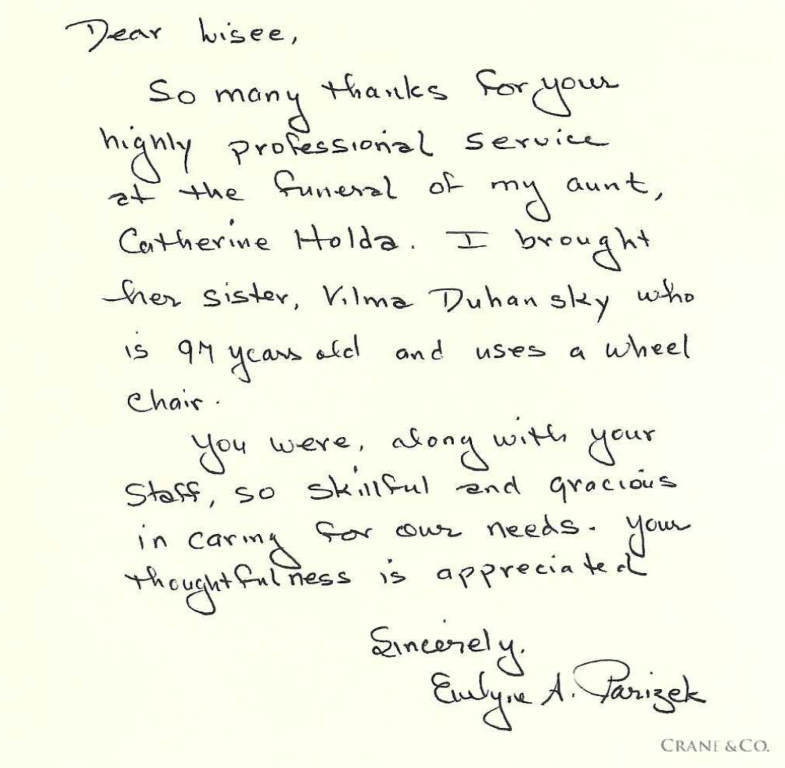 Dear Lisee,
So many thanks for your
highly professional service
at the funeral of my aunt,
Catherine Holda. I brought
her sister, Vilma Duhansky who
is 97 years old and uses a wheel
chair.
You were, along with your
staff, so skillful and gracious
in caring for our needs. Your
thoughtfulness is appreciated
Sincerely,
A. Parizek
CRANE & CO.